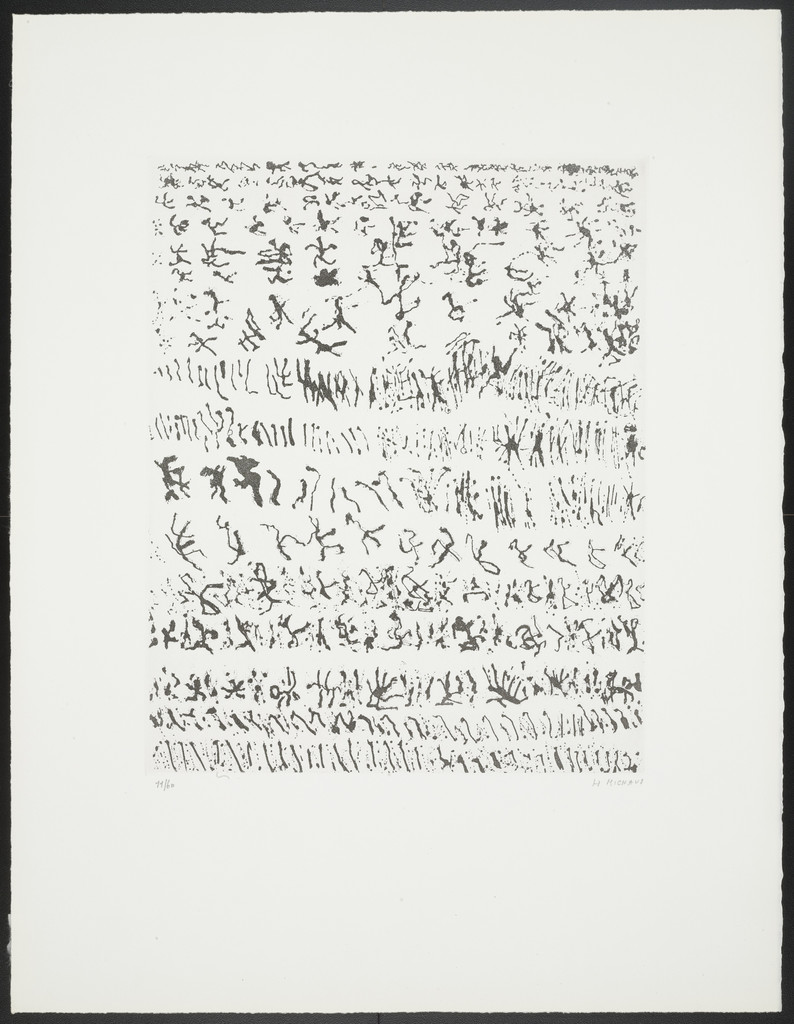 11/60
H MICHAUX